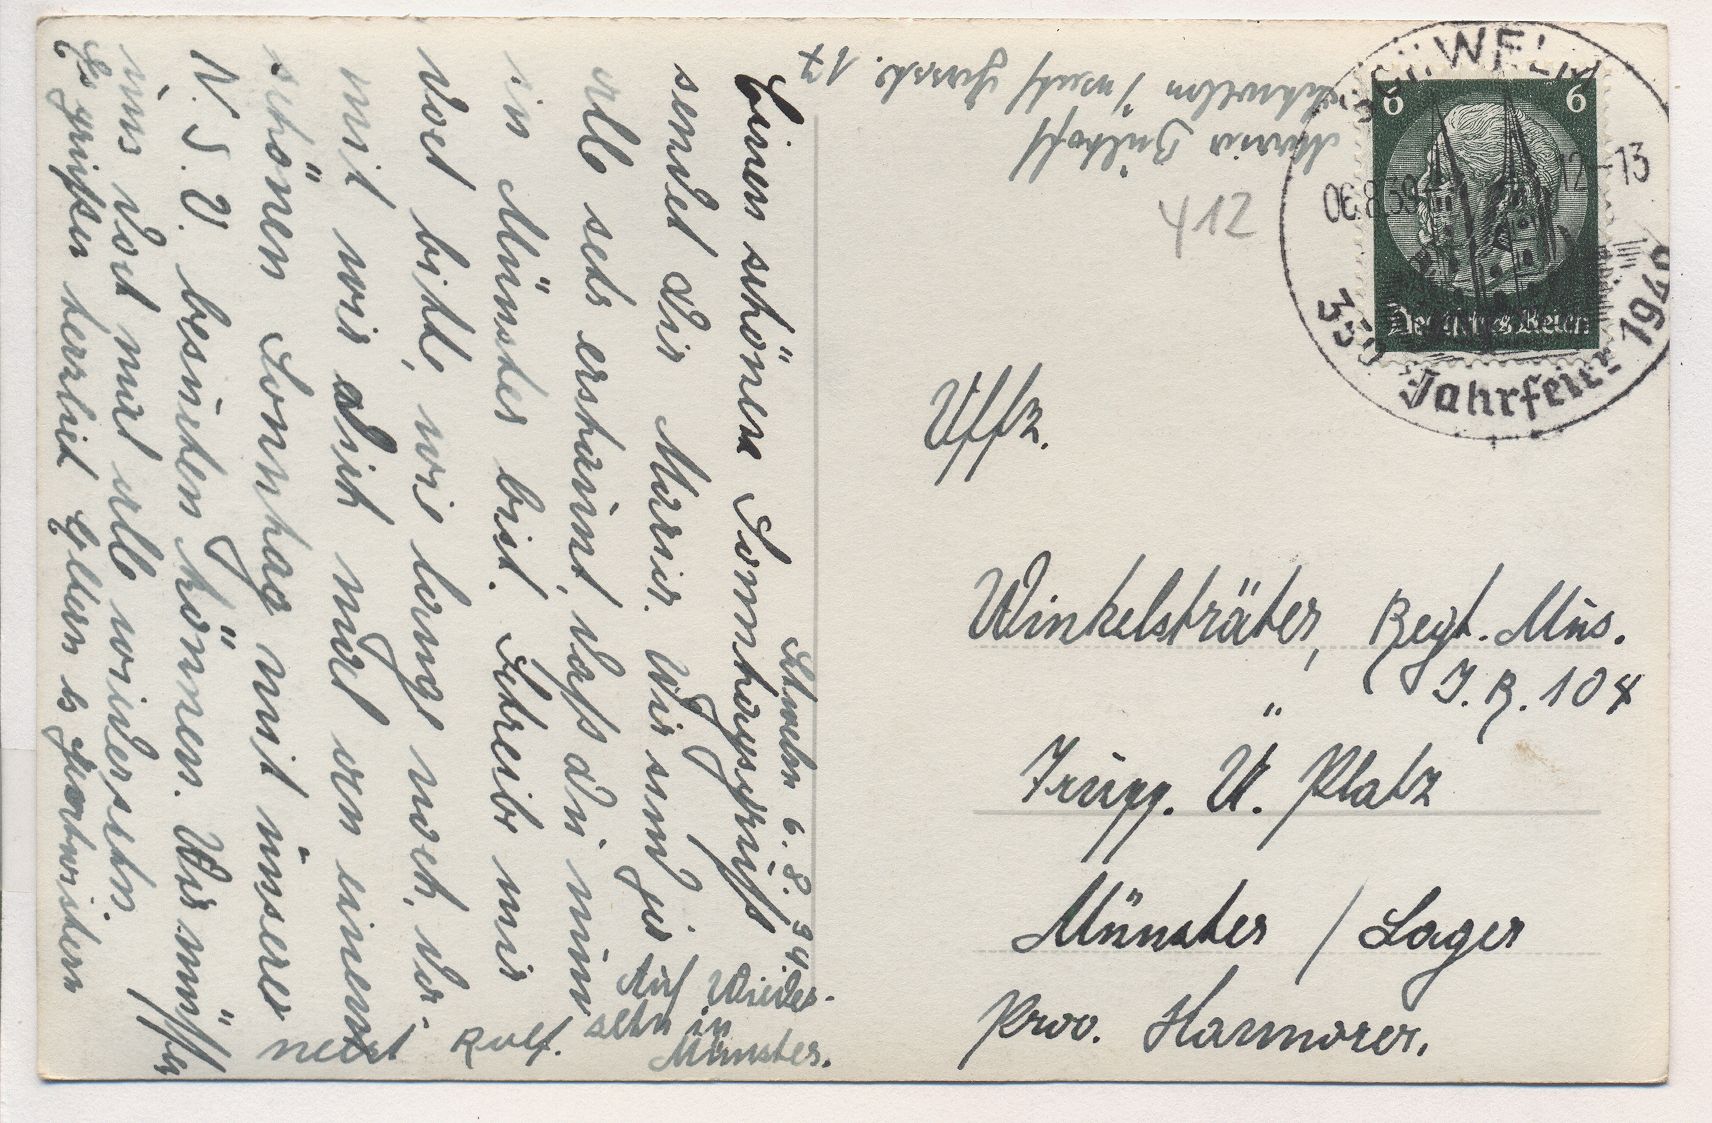 Schwelm 6.8.34
Einen schönen Sonntagsgruß
sendet Dir Maria. Wir sind ja
alle sehr erstaunt, daß du nun
in Münster bist. Schreibe mir
doch bitte, wie lange noch, da-
mit wir dich mal an einem
schönen Sonntag mit unserer
N.S.U. besuchen können. Wir müssen
uns doch mal alle wiedersehn
Es grüßen herzlich Eltern & Geschwistern
nebst Rolf.
Auf Wieder-
sehn in
Münster.
Maria
Schwelm
17
412
SCHWELM
06.8.39
12-13
350
Jahrfeier
6 6
Deutsches Reich
Uffz.
Winkelsträter, Regt. Mus.
I. R. 104
Trupp. Ü. Platz
Münster / Lager
Prov. Hannover.